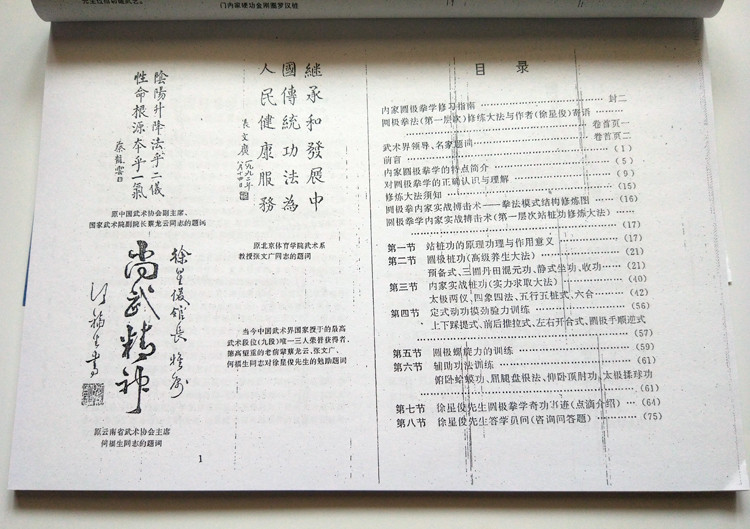 门内家绝功金刚盤罗汉桩
陰陽升降法乎二儀
性命根源本乎一氣
蔡龍雲
原中国武术协会副主席、
国家武术院副院长蔡龙云同志的题词
继承和發展中
國傳統功法為
人民健康服務
張文廣
一九九二年
八月十四日
原北京体育学院武术系
教授张文广同志的题词
徐星俊馆長
尚武精神
何福生書
原云南省武术协会主席
何福生同志的题词
当今中国武术界国家授于的最高
武术段位(九段)唯一三人荣誉获得者,
德高望重的老前辈蔡龙云、张文广、
何福生同志对徐星俊先生的勉励题词
1
目录
内家圆极拳学修习指南 封二
圆极拳法(第一层次)修练大法与作者(徐星俊)寄语
卷首页一
武术界领导、名家题词 卷首页二
前言 (1)
内家圆极拳学的特点简介 (5)
对圆极拳学的正确认识与理解 (9)
修练大法须知 (15)
圆极拳内家实战搏击术——拳法模式结构修炼图 (16)
圆极拳学内家实战搏击术(第一层次站桩功修炼大法)
(17)
第一节 站桩功的原理功理与作用意义 (17)
第二节 圆极桩功(高级养生大法) (21)
预备式、三圆丹田混元功、静式坐功、收功 (21)
第三节 内家实战桩功(实力求取大法) (40)
太极两仪、四象四法、五行五桩式、六合 (42)
第四节 定式动功摸劲验力训练 (56)
上下踩提式、前后推拉式、左右开合式、圆极手顺逆式
(57)
第五节 圆极螺旋力的训练 (59)
第六节 辅助功法训练 (61)
俯卧蛤蟆功、屈腿盘根法、仰卧顶肘功、太极揉球功
(61)
第七节 徐星俊先生圆极拳学奇功事迹(点滴介绍) (64)
第八节 徐星俊先生答学员问(咨询问答题) (75)